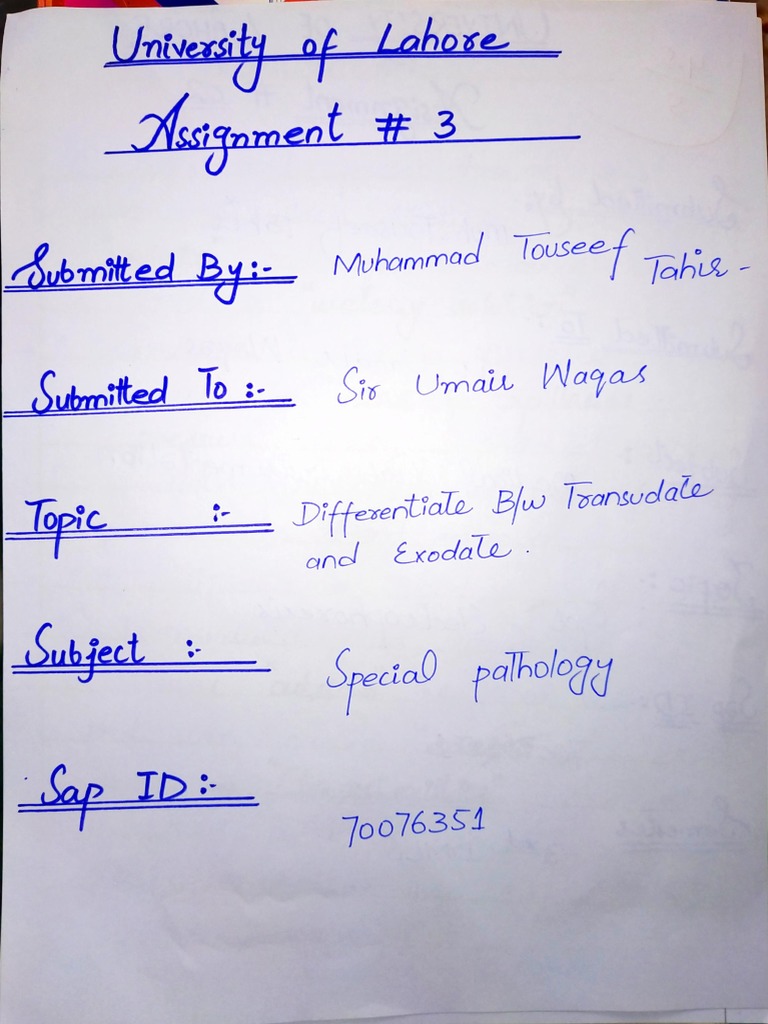 University of Lahore
Assignment # 3
Submitted By:- Muhammad Touseef Tahir -
Submitted To :- Sir Umair Waqas
Topic :- Differentiate B/w Transudate
and Exodate.
Subject :- Special pathology
Sap ID:-
70076351